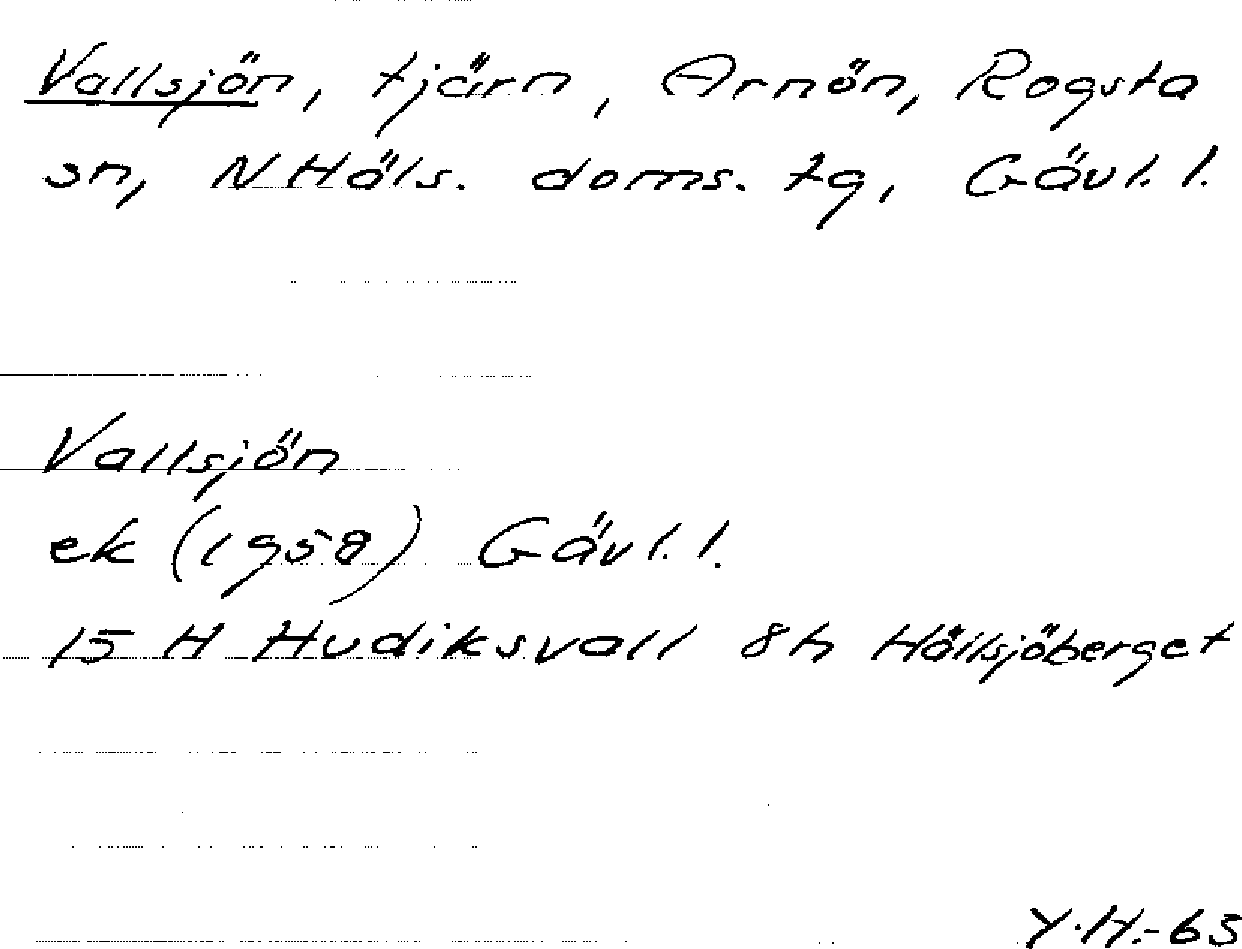 Vallsjön, tjärn, Arnön, Rogsta
sn, N Häls. doms. tg, Gävl. l.
Vallsjön
ek (1958) Gävl. l.
15 H Hudiksvall 8h Hållsjöberget
Y.H.-63